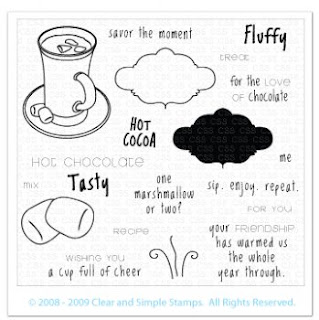 savor the moment
Fluffy
TREAT
for the LOVE
of chocolate
HOT
COCOA
HOT CHOCOLATE
me
MIX
Tasty
one
marshmallow
or two?
sip. enjoy. repeat.
FOR YOU
RECIPE
your FRIENDSHIP
has warmed us
the whole
year through.
WISHING YOU
a cup full of cheer
© 2008 - 2009 Clear and Simple Stamps. All Rights Reserved.